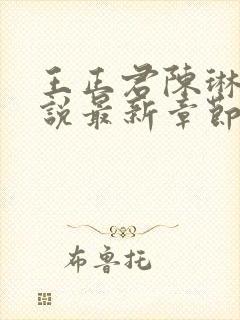 王正君陳琳
說最新章節
布魯托